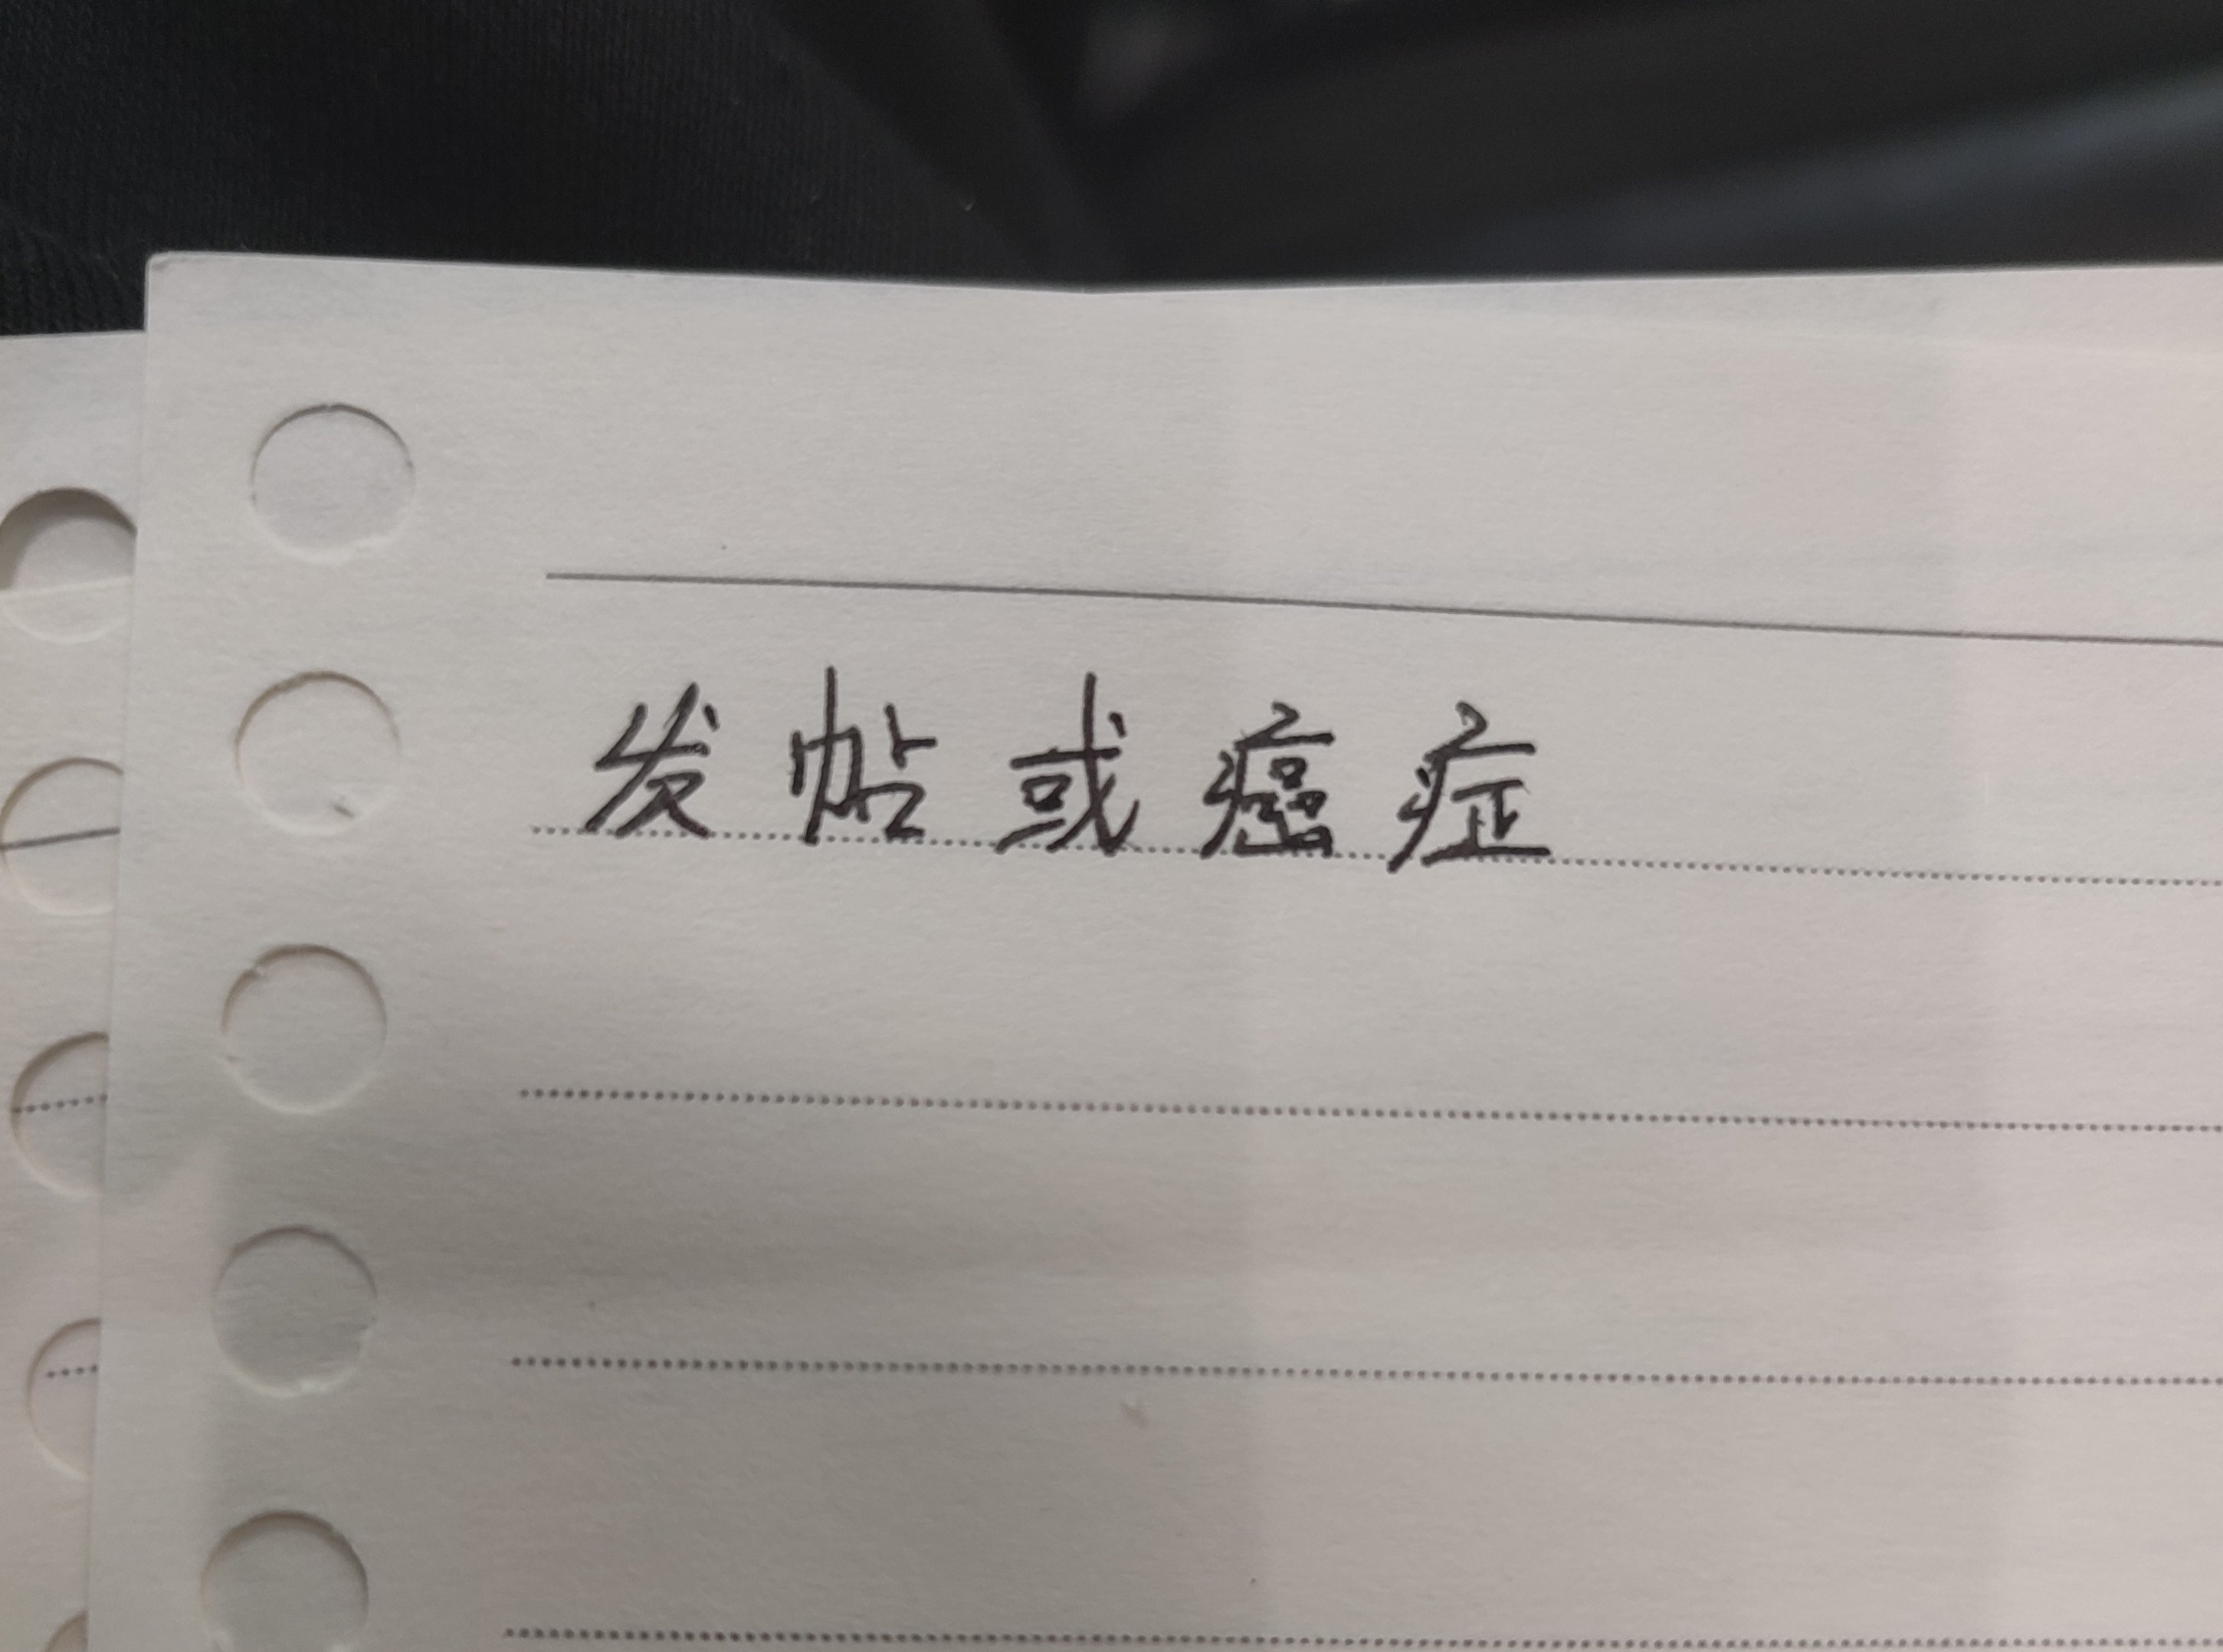 发帖或癌症